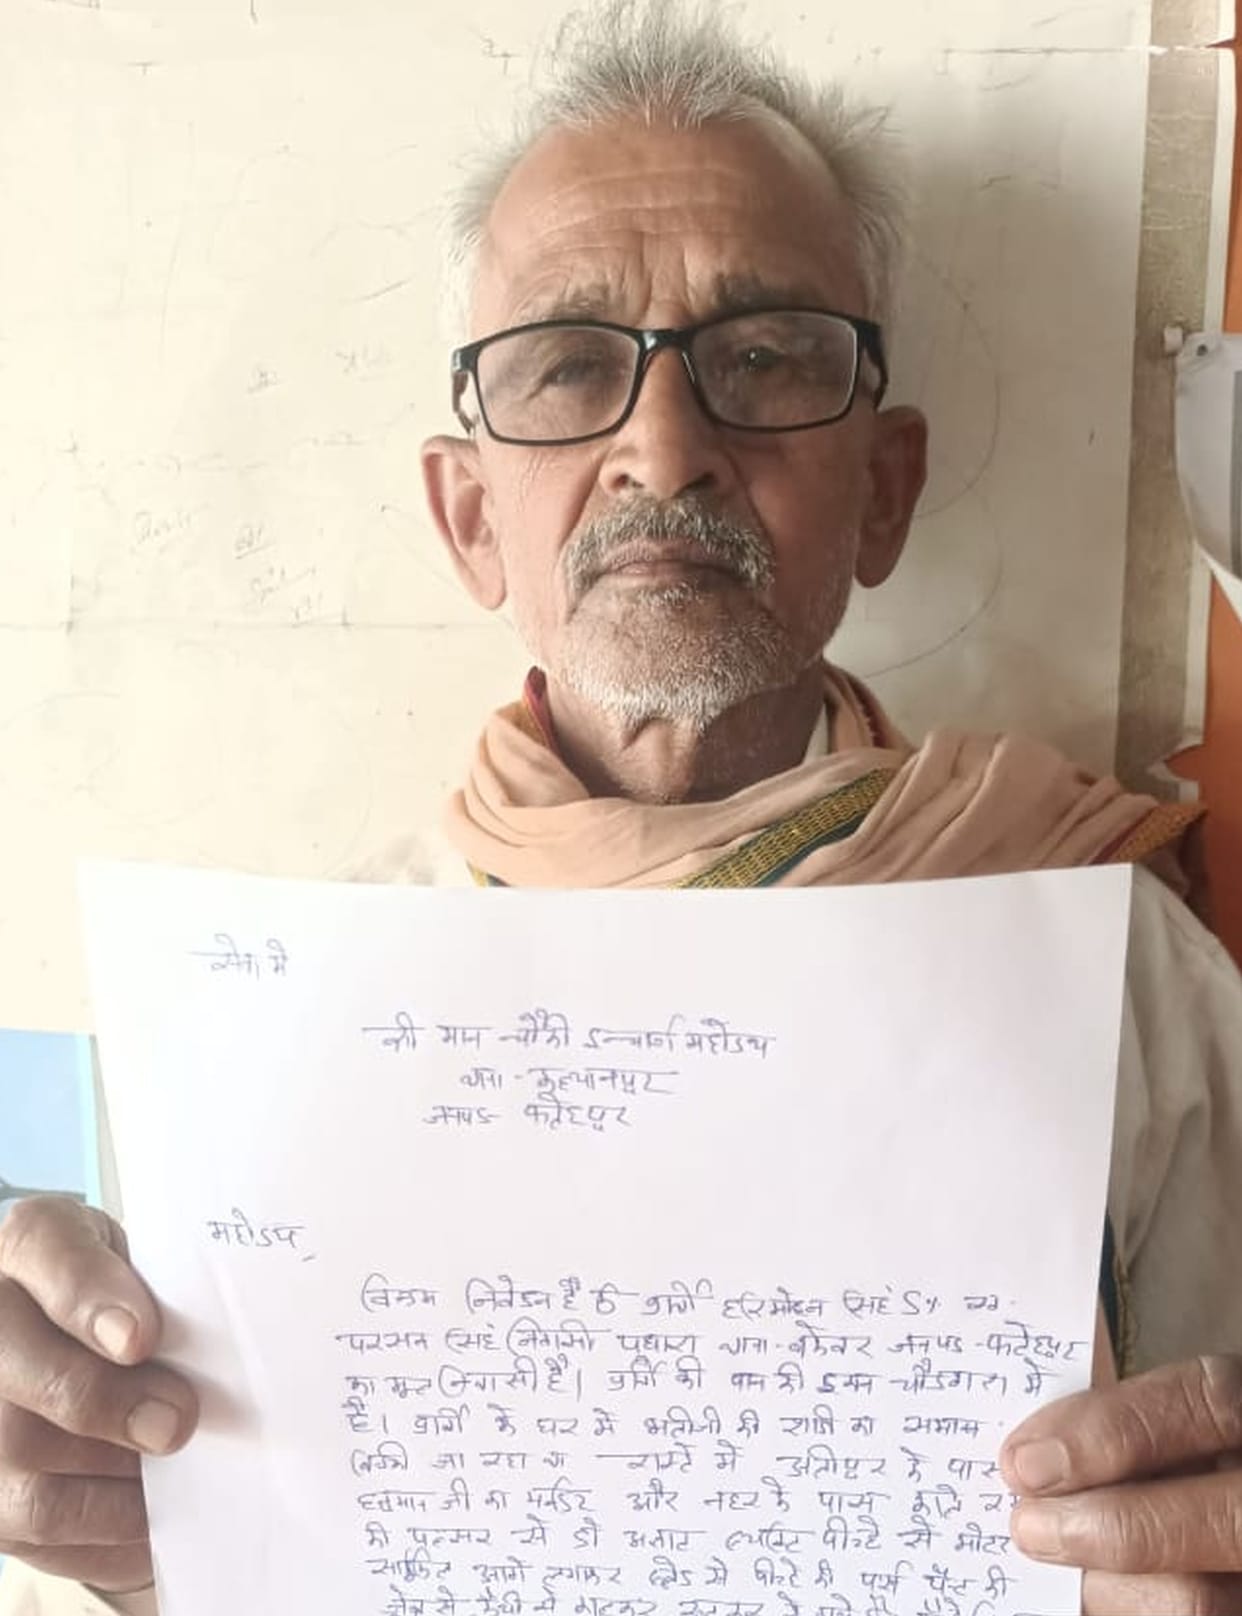 सेवा मे
श्री मान चौकी इन्चार्ज महोदय
थाना - कल्यानपुर
जनपद फतेहपुर
महोदय,
विनम्र निवेदन है कि प्रार्थी हरिमोहन सिहं S/० स्व०
परसन सिहं निवासी पधारा थाना - बकेवर जनपद - फतेहपुर
का मूल निवासी है। प्रार्थी की पान की दुकान चौडगरा मे
है। प्रार्थी के घर मे भतीजी की शादी का समान
जा रहा था रास्ते मे के पास
हनुमान जी का मन्दिर और नहर के पास काले रंग
की पल्सर से दो अज्ञात व्यक्ति पीछे से मोटर
साईकिल आगे लगाकर ब्लेड से पीछे की पर्स पैन्ट की
जेब से कैंची से काटकर